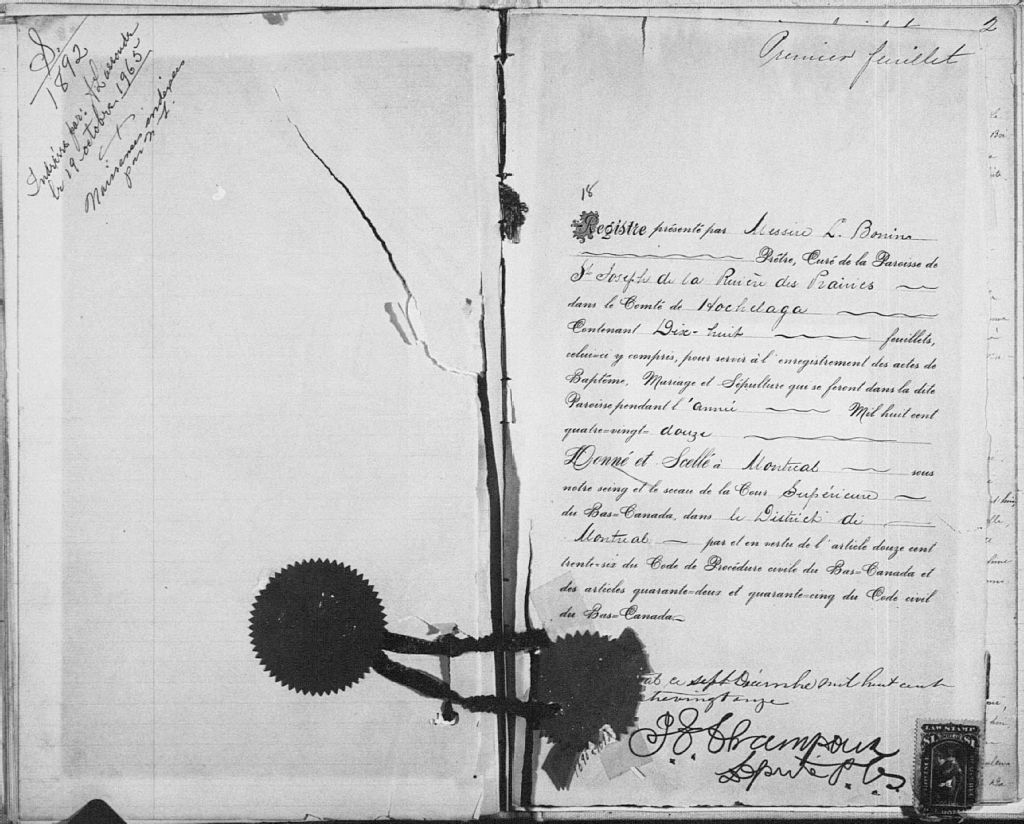 S.
1892
le 19 octobre 1965
Naissances indexées
par
2
Premier feuillet
18
Registre présenté par Messire L. Bonin
Prêtre, Curé de la Paroisse de
St Joseph de la Rivière des Prairies
dans le Comté de Hochelaga
Contenant Dix-huit feuillets,
celui-ci y compris, pour servir à l'enregistrement des actes de
Baptême, Mariage et Sépulture qui se feront dans la dite
Paroisse pendant l'année Mil huit cent
quatre-vingt-douze
Donné et Scellé à Montréal sous
notre seing et le sceau de la Cour Supérieure
du Bas-Canada, dans le District de
Montréal par et en vertu de l'article douze cent
trente-six du Code de Procédure civile du Bas-Canada et
des articles quarante-deux et quarante-cinq du Code civil
du Bas-Canada
ce sept Décembre mil huit cent
onze
Champoux
LAW STAMP
$1